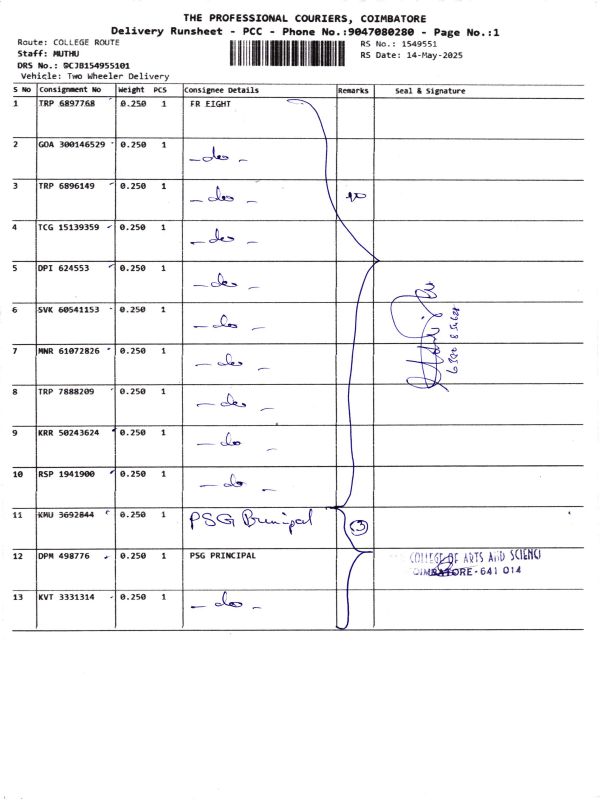 THE PROFESSIONAL COURIERS, COIMBATORE
Delivery Runsheet - PCC - Phone No.:9047080280 - Page No.:1
Route: COLLEGE ROUTE
RS No.: 1549551
Staff: MUTHU
RS Date: 14-May-2025
DRS No.: GCJB154955101
Vehicle: Two Wheeler Delivery
S No Consignment No Weight PCS Consignee Details Remarks Seal & Signature
1 TRP 6897768 0.250 1 FR EIGHT
2 GOA 300146529 0.250 1 -do-
3 TRP 6896149 0.250 1 -do-
4 TCG 15139359 0.250 1 -do-
5 DPI 624553 0.250 1 -do-
6 SVK 60541153 0.250 1 -do-
7 MNR 61072826 0.250 1 -do-
8 TRP 7888209 0.250 1 -do-
9 KRR 50243624 0.250 1 -do-
10 RSP 1941900 0.250 1 -do-
11 KMU 3692844 0.250 1 PSG 3
12 DPM 498776 0.250 1 PSG PRINCIPAL COLLEGE OF ARTS AND SCIENC
OIMBATORE - 641 014
13 KVT 3331314 0.250 1 -do-